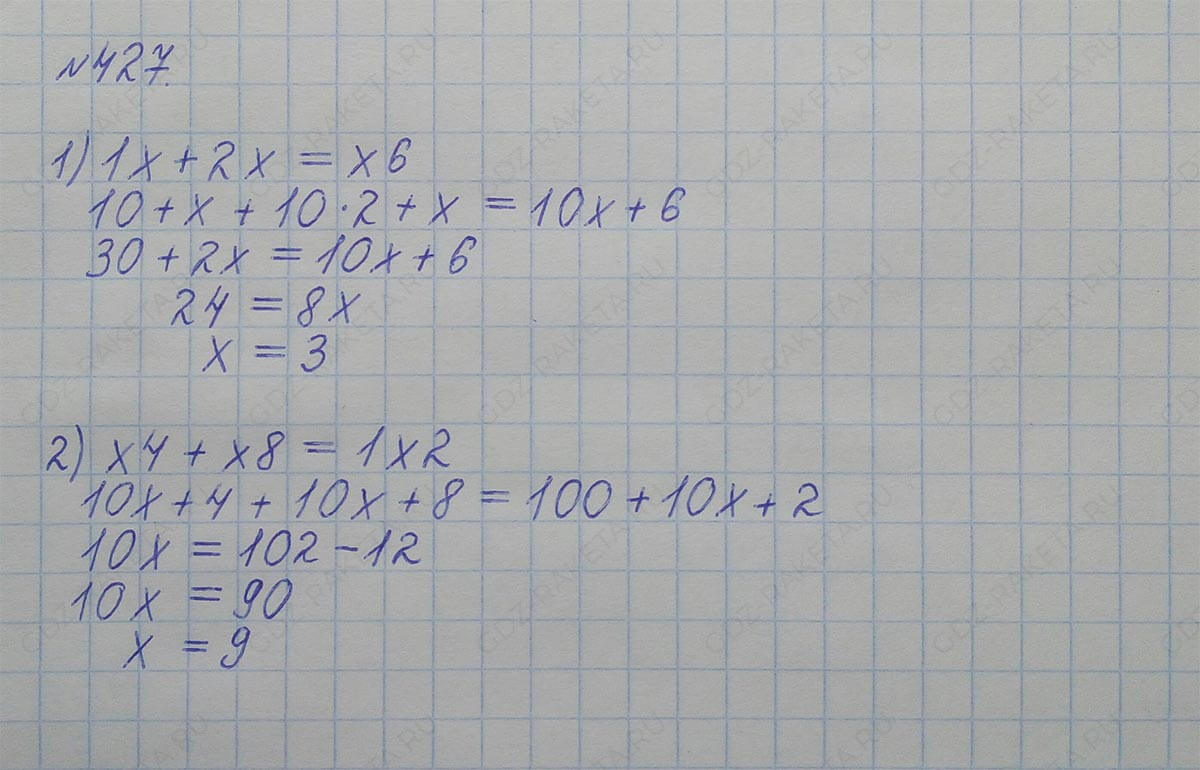 №427.
1) 1x + 2x = x6
10 + x + 10·2 + x = 10x + 6
30 + 2x = 10x + 6
24 = 8x
x = 3
2) x4 + x8 = 1x2
10x + 4 + 10x + 8 = 100 + 10x + 2
10x = 102 - 12
10x = 90
x = 9
GDZ-RAKETA.RU